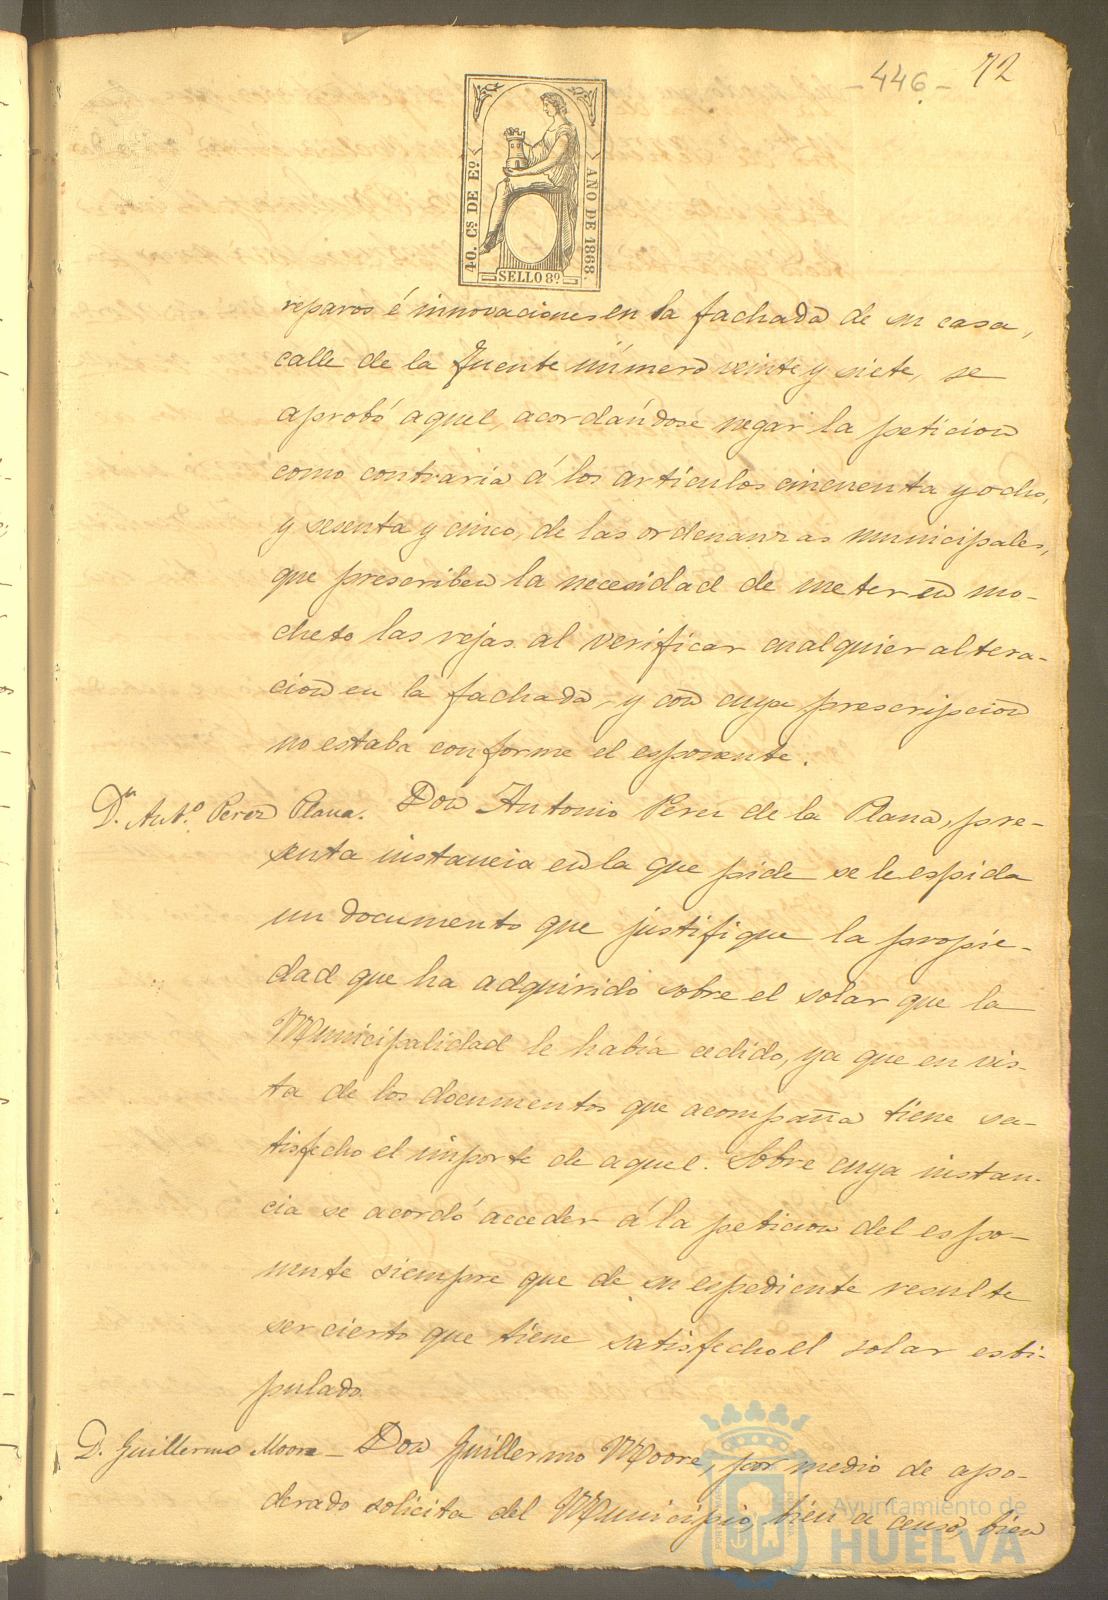 - 446 - 72
40. Cs DE Eo.
AÑO DE 1868.
SELLO 8o.
reparos é innovaciones en la fachada de su casa,
calle de la Fuente número veinte y siete, se
aprobó aquel, acordándose negar la peticion
como contraria á los artículos cincuenta y ocho,
y sesenta y cinco, de las ordenanzas municipales,
que prescriben la necesidad de meter en mo-
cheto las rejas al verificar cualquier altera-
cion en la fachada, y con cuya prescripcion
no estaba conforme el esponente.
Dn. Anto. Perez Plana. Don Antonio Perez de la Plana, pre-
senta instancia en la que pide se le espida
un documento que justifique la propie-
dad que ha adquirido sobre el solar que la
Municipalidad le habia cedido, ya que en vis-
ta de los documentos que acompaña tiene sa-
tisfecho el importe de aquel. Sobre cuya instan-
cia se acordó acceder á la peticion del espo-
nente siempre que de su espediente resulte
ser cierto que tiene satisfecho el solar esti-
pulado.
D. Guillermo Moore - Don Guillermo Moore, por medio de apo-
derado solicita del Municipio, bien á censo, bien
Ayuntamiento de
HUELVA